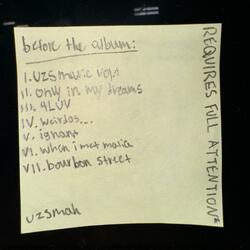 before the album:
I. UZSMATIC VOL1
II. only in my dreams
III. 4LUV
IV. weirdos...
V. ignant
VI. when i met malia
VII. bourbon street
UZSMAH
REQUIRES FULL ATTENTION*